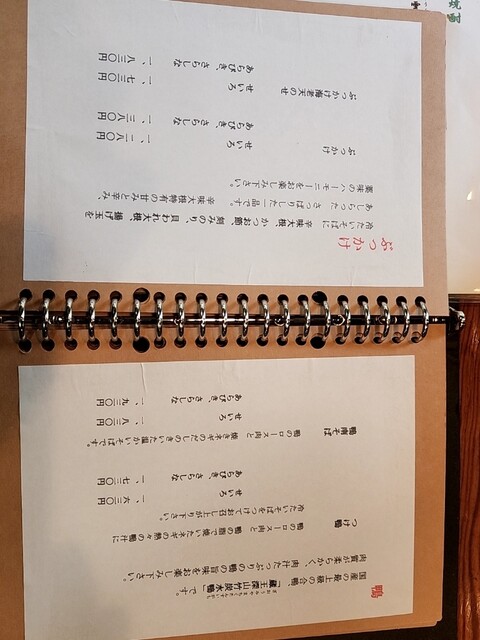 焼酎
ぶっかけ
冷たいそばに 辛味大根、かつお節、刻みのり、貝われ大根、揚げ玉を
あしらった さっぱりした一品です。辛味大根特有の甘みと辛み、
薬味のハーモニーをお楽しみ下さい。
ぶっかけ
せいろ 一、二八〇円
あらびき、さらしな 一、三八〇円
ぶっかけ海老天のせ
せいろ 一、七三〇円
あらびき、さらしな 一、八三〇円
鴨
国産の最上級の合鴨「蔵王深山竹炭水鴨」です。
肉質が柔らかく、肉汁たっぷりの鴨の旨味をお楽しみ下さい。
つけ鴨 鴨のロース肉と 鴨の脂で焼いたネギの熱々の鴨汁に
冷たいそばをつけてお召し上がり下さい。
せいろ 一、六三〇円
あらびき、さらしな 一、七三〇円
鴨南そば 鴨のロース肉と 焼きネギのだしのきいた温かいそばです。
せいろ 一、八三〇円
あらびき、さらしな 一、九三〇円